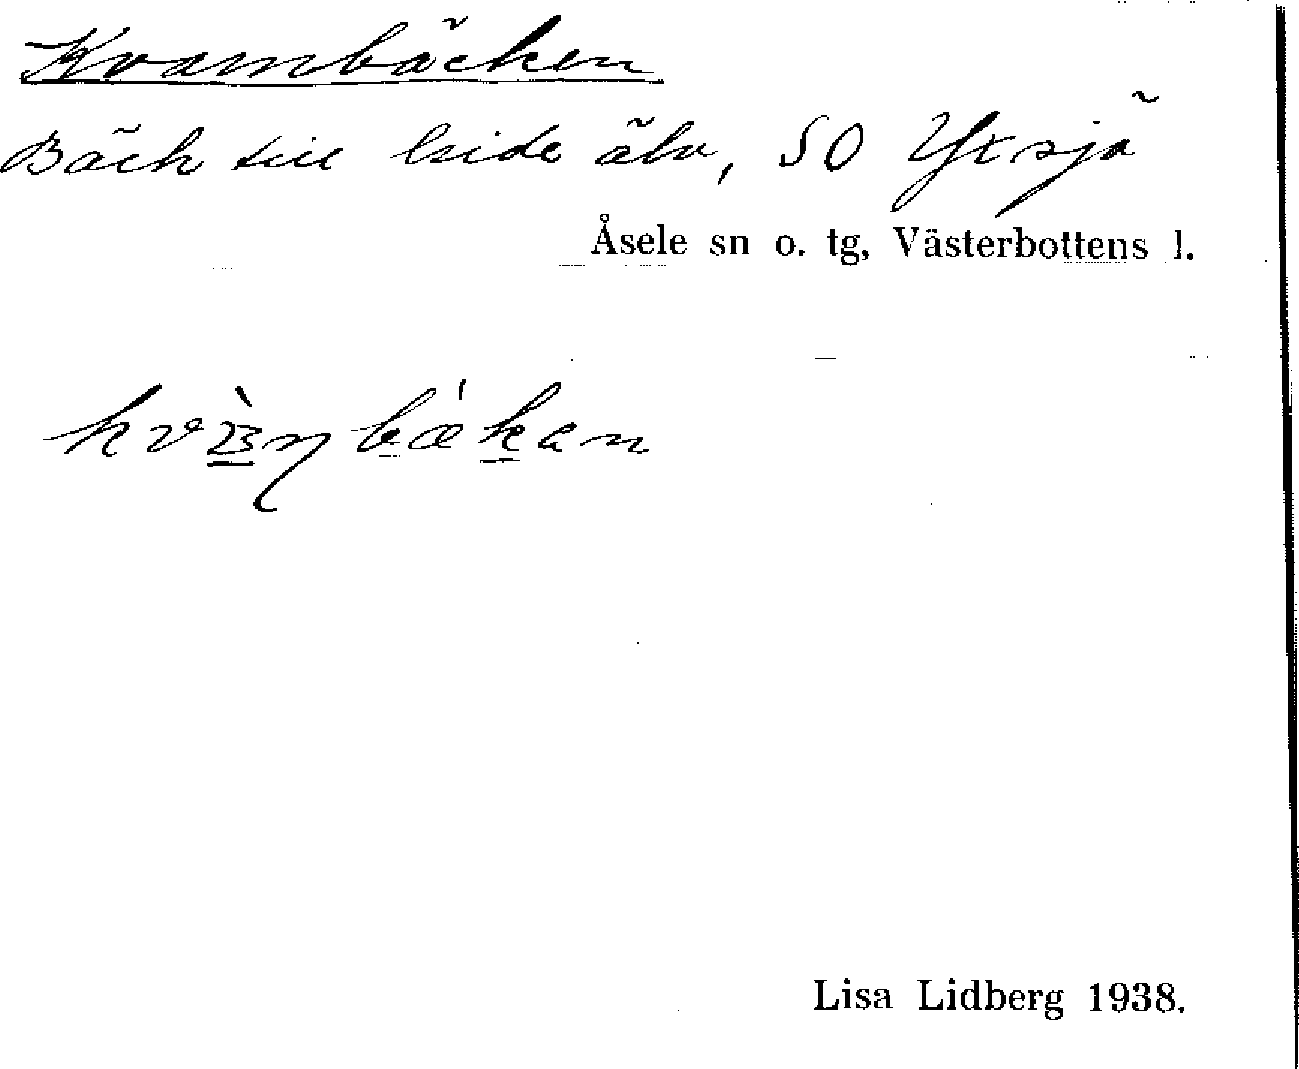 Kvarnbäcken
Bäck till Lide älv, SO Yxsjö
Åsele sn o. tg, Västerbottens l.
Lisa Lidberg 1938.